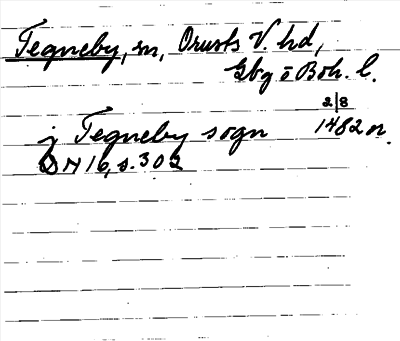 Tegneby, sn, Orusts V. hd,
Gbg o Boh. l.
2/8
j Tegneby sogn 1482 n.
DN 16, s. 302